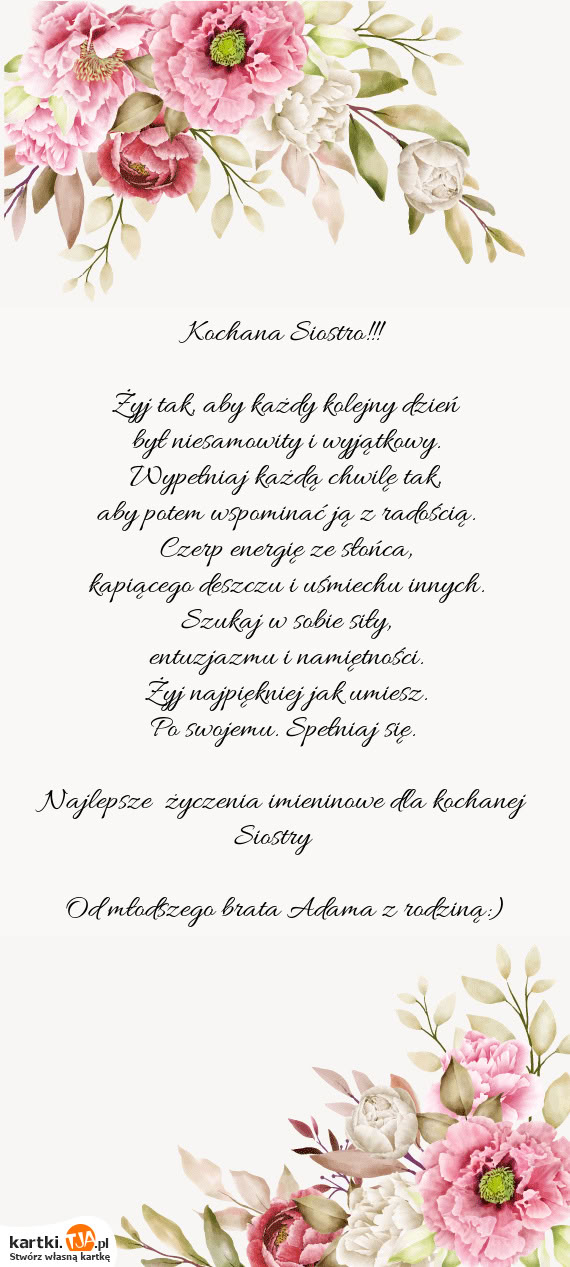 Kochana Siostro!!!
Żyj tak, aby każdy kolejny dzień
był niesamowity i wyjątkowy.
Wypełniaj każdą chwilę tak,
aby potem wspominać ją z radością.
Czerp energię ze słońca,
kapiącego deszczu i uśmiechu innych.
Szukaj w sobie siły,
entuzjazmu i namiętności.
Żyj najpiękniej jak umiesz.
Po swojemu. Spełniaj się.
Najlepsze życzenia imieninowe dla kochanej
Siostry
Od młodszego brata Adama z rodziną:)
kartki.TJA.pl
Stwórz własną kartkę